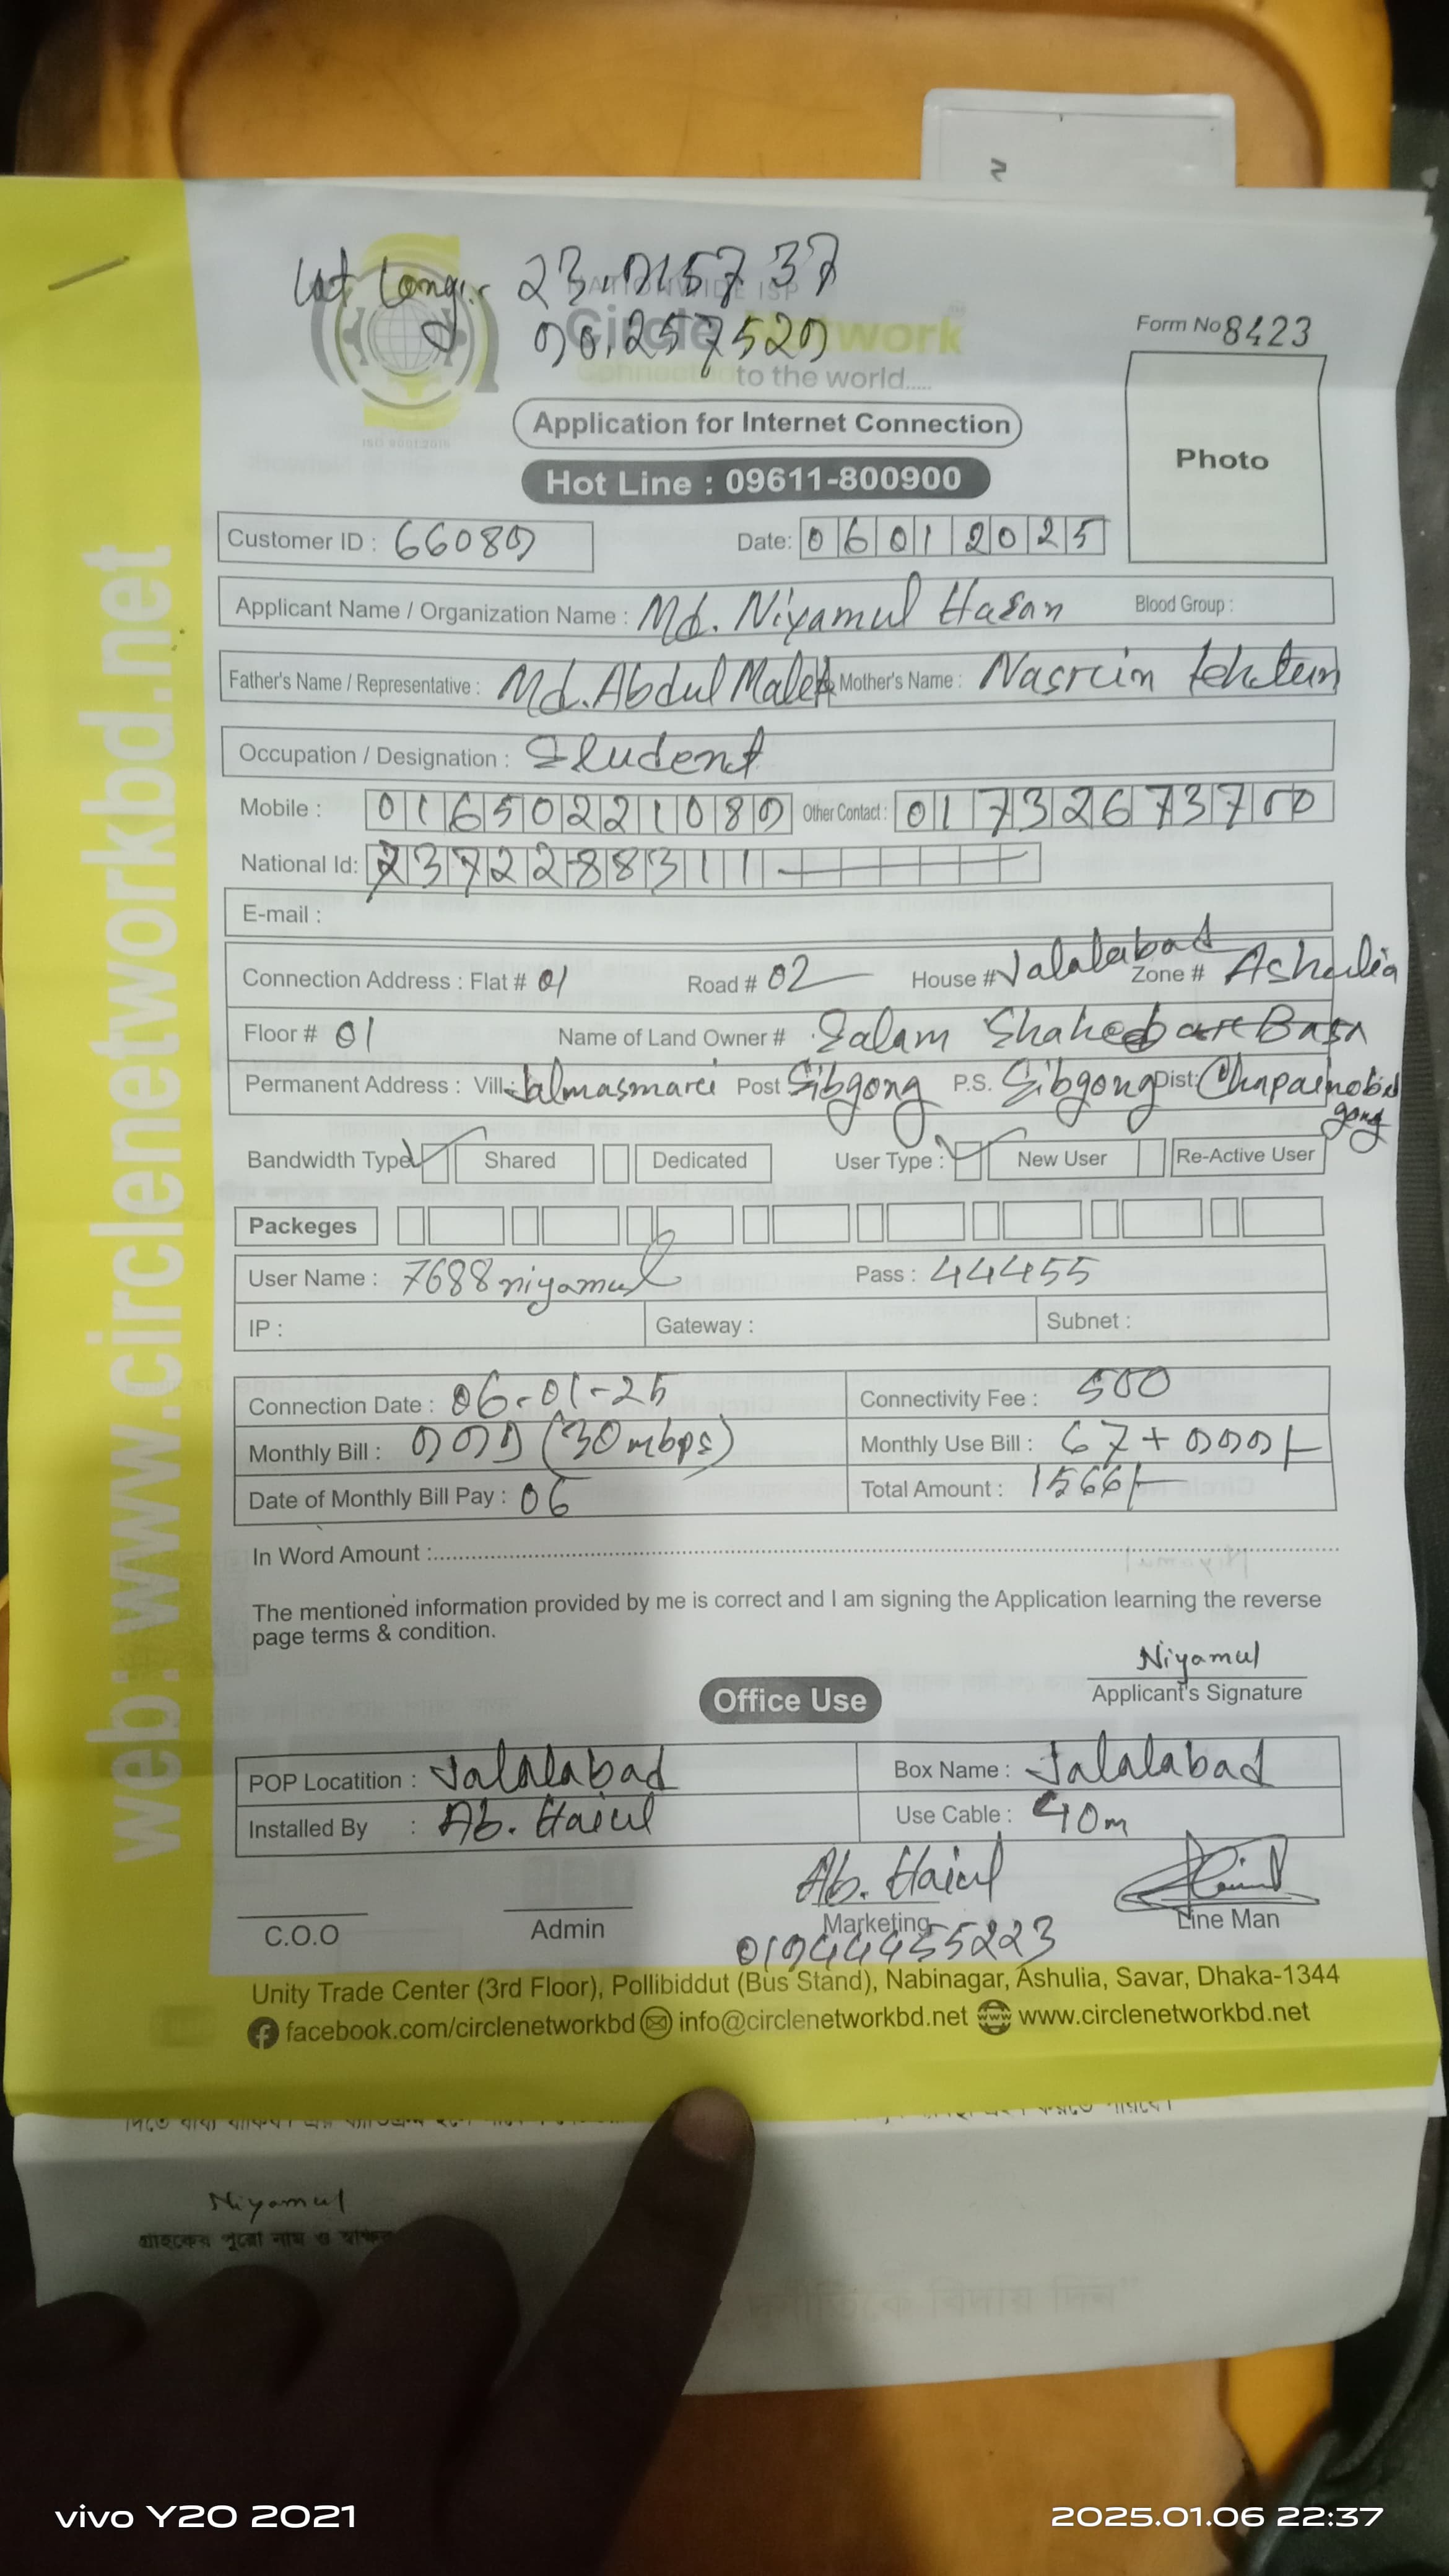 Lat Long:- 23.915737
90.257529
NATIONWIDE ISP
Circle Network
Connected to the world.....
ISO 9001:2015
Form No 8423
Photo
Application for Internet Connection
Hot Line : 09611-800900
Customer ID : 66089 Date: 06012025
Applicant Name / Organization Name : Md. Niyamul Hasan Blood Group :
Father's Name / Representative : Md. Abdul Malek Mother's Name : Nasrein
Occupation / Designation : Student
Mobile : 01650221089 Other Contact : 01732673700
National Id: 2372288311
E-mail :
Connection Address : Flat # 01 Road # 02 House # Jalalabad Zone # Ashulia
Floor # 01 Name of Land Owner # Salam Basa
Permanent Address : Vill: Jalmasmarei Post Sibgong P.S. Sibgong Dist: Chapainobabgong
Bandwidth Type Shared Dedicated User Type : New User Re-Active User
Packeges
User Name : 7688niyamul Pass : 44455
IP : Gateway : Subnet :
Connection Date : 06-01-25 Connectivity Fee : 500
Monthly Bill : 999 (30mbps) Monthly Use Bill : 67+999/-
Date of Monthly Bill Pay : 06 Total Amount : 1566/-
In Word Amount :
The mentioned information provided by me is correct and I am signing the Application learning the reverse
page terms & condition.
Niyamul
Applicant's Signature
Office Use
POP Locatition : Jalalabad Box Name : Jalalabad
Installed By : Ab. Haiul Use Cable : 40m
Ab. Haiul
C.O.O Admin Marketing Line Man
01944455223
Unity Trade Center (3rd Floor), Pollibiddut (Bus Stand), Nabinagar, Ashulia, Savar, Dhaka-1344
facebook.com/circlenetworkbd info@circlenetworkbd.net www.circlenetworkbd.net
web: www.circlenetworkbd.net
Niyamul
গ্রাহকের পুরো নাম ও
vivo Y20 2021
2025.01.06 22:37